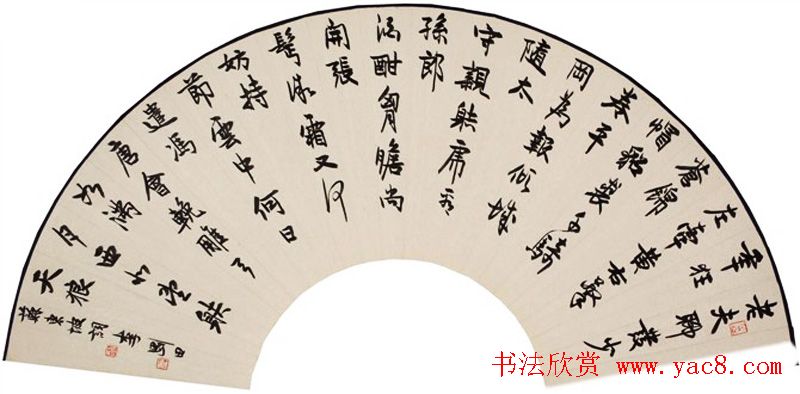 老夫聊發少
年狂
左牽黃右擎
蒼錦
帽貂裘千騎
卷平
岡為報傾城
隨太
守親射虎看
孫郎
酒酣胸膽尚
開張
鬢微霜又何
妨持
節雲中何日
遣馮
唐會挽雕弓
如滿
月西北望射
天狼
蘇東坡詞
书法欣赏 www.yac8.com